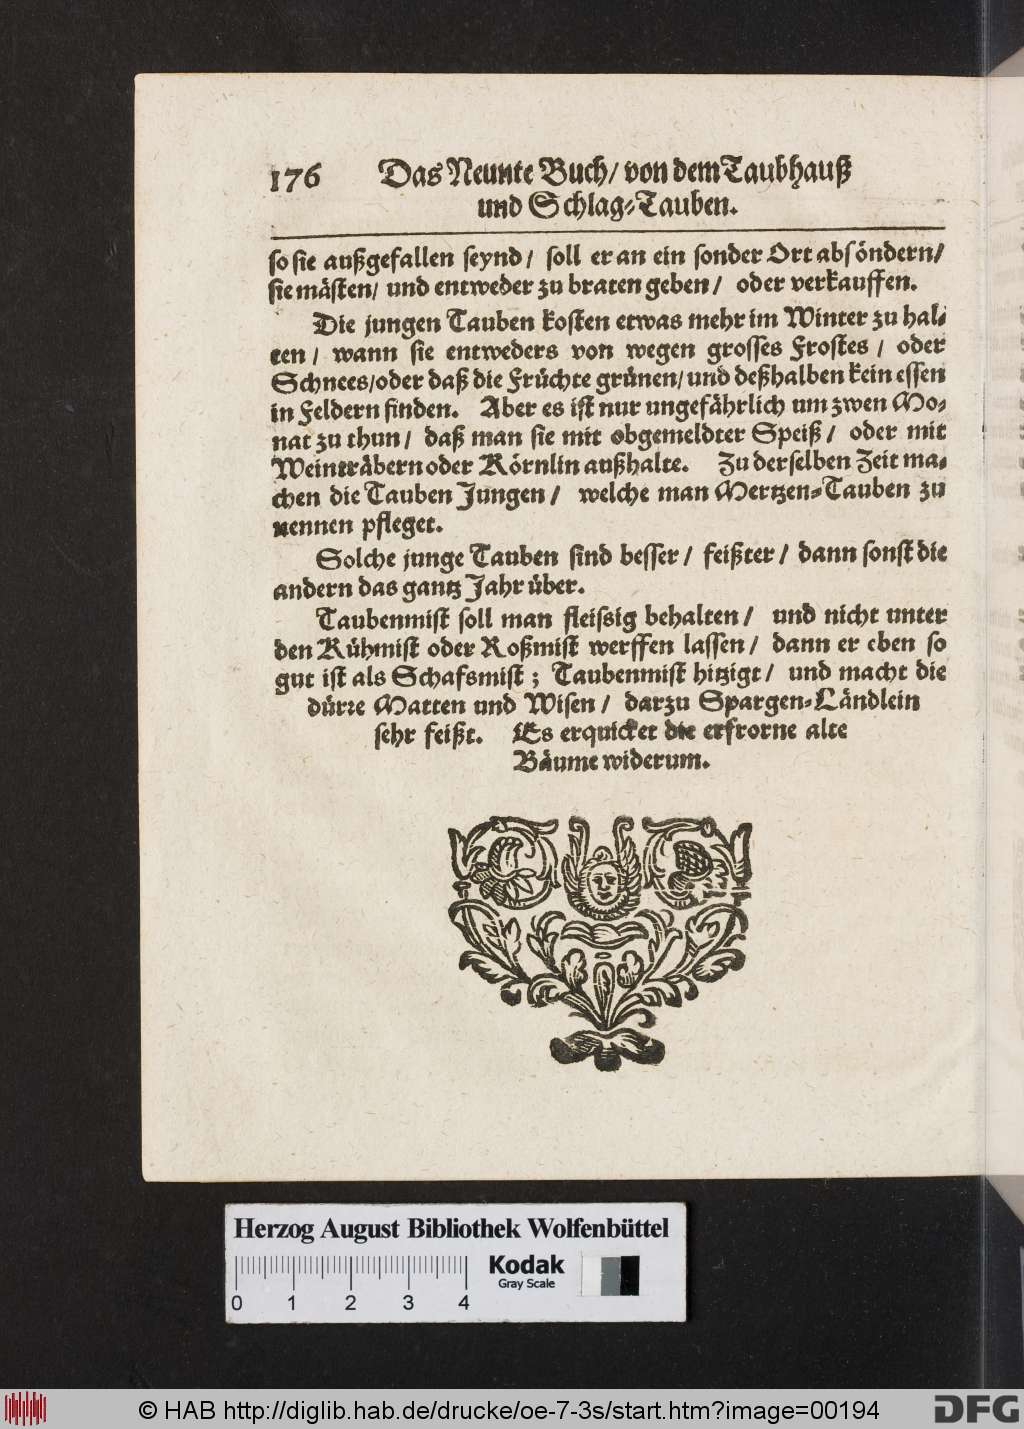 176 Das Neunte Buch/ von dem Taubhauß
und Schlag-Tauben.
so sie außgefallen seynd/ soll er an ein sonder Ort absöndern/
sie mästen/ und entweder zu braten geben/ oder verkauffen.
Die jungen Tauben kosten etwas mehr im Winter zu hal-
ten/ wann sie entweders von wegen grosses Frostes/ oder
Schnees/oder daß die Früchte grünen/und deßhalben kein essen
in Feldern finden. Aber es ist nur ungefährlich um zwen Mo-
nat zu thun/ daß man sie mit obgemeldter Speiß/ oder mit
Weinträbern oder Körnlin außhalte. Zu derselben Zeit ma-
chen die Tauben Jungen/ welche man Mertzen-Tauben zu
nennen pfleget.
Solche junge Tauben sind besser/ feißter/ dann sonst die
andern das gantz Jahr über.
Taubenmist soll man fleissig behalten/ und nicht unter
den Kühmist oder Roßmist werffen lassen/ dann er eben so
gut ist als Schafsmist; Taubenmist hitzigt/ und macht die
dürre Matten und Wisen/ darzu Spargen-Ländlein
sehr feißt. Es erquicket die erfrorne alte
Bäume widerum.
Herzog August Bibliothek Wolfenbüttel
Kodak
Gray Scale
0 1 2 3 4
© HAB http://diglib.hab.de/drucke/oe-7-3s/start.htm?image=00194
DFG